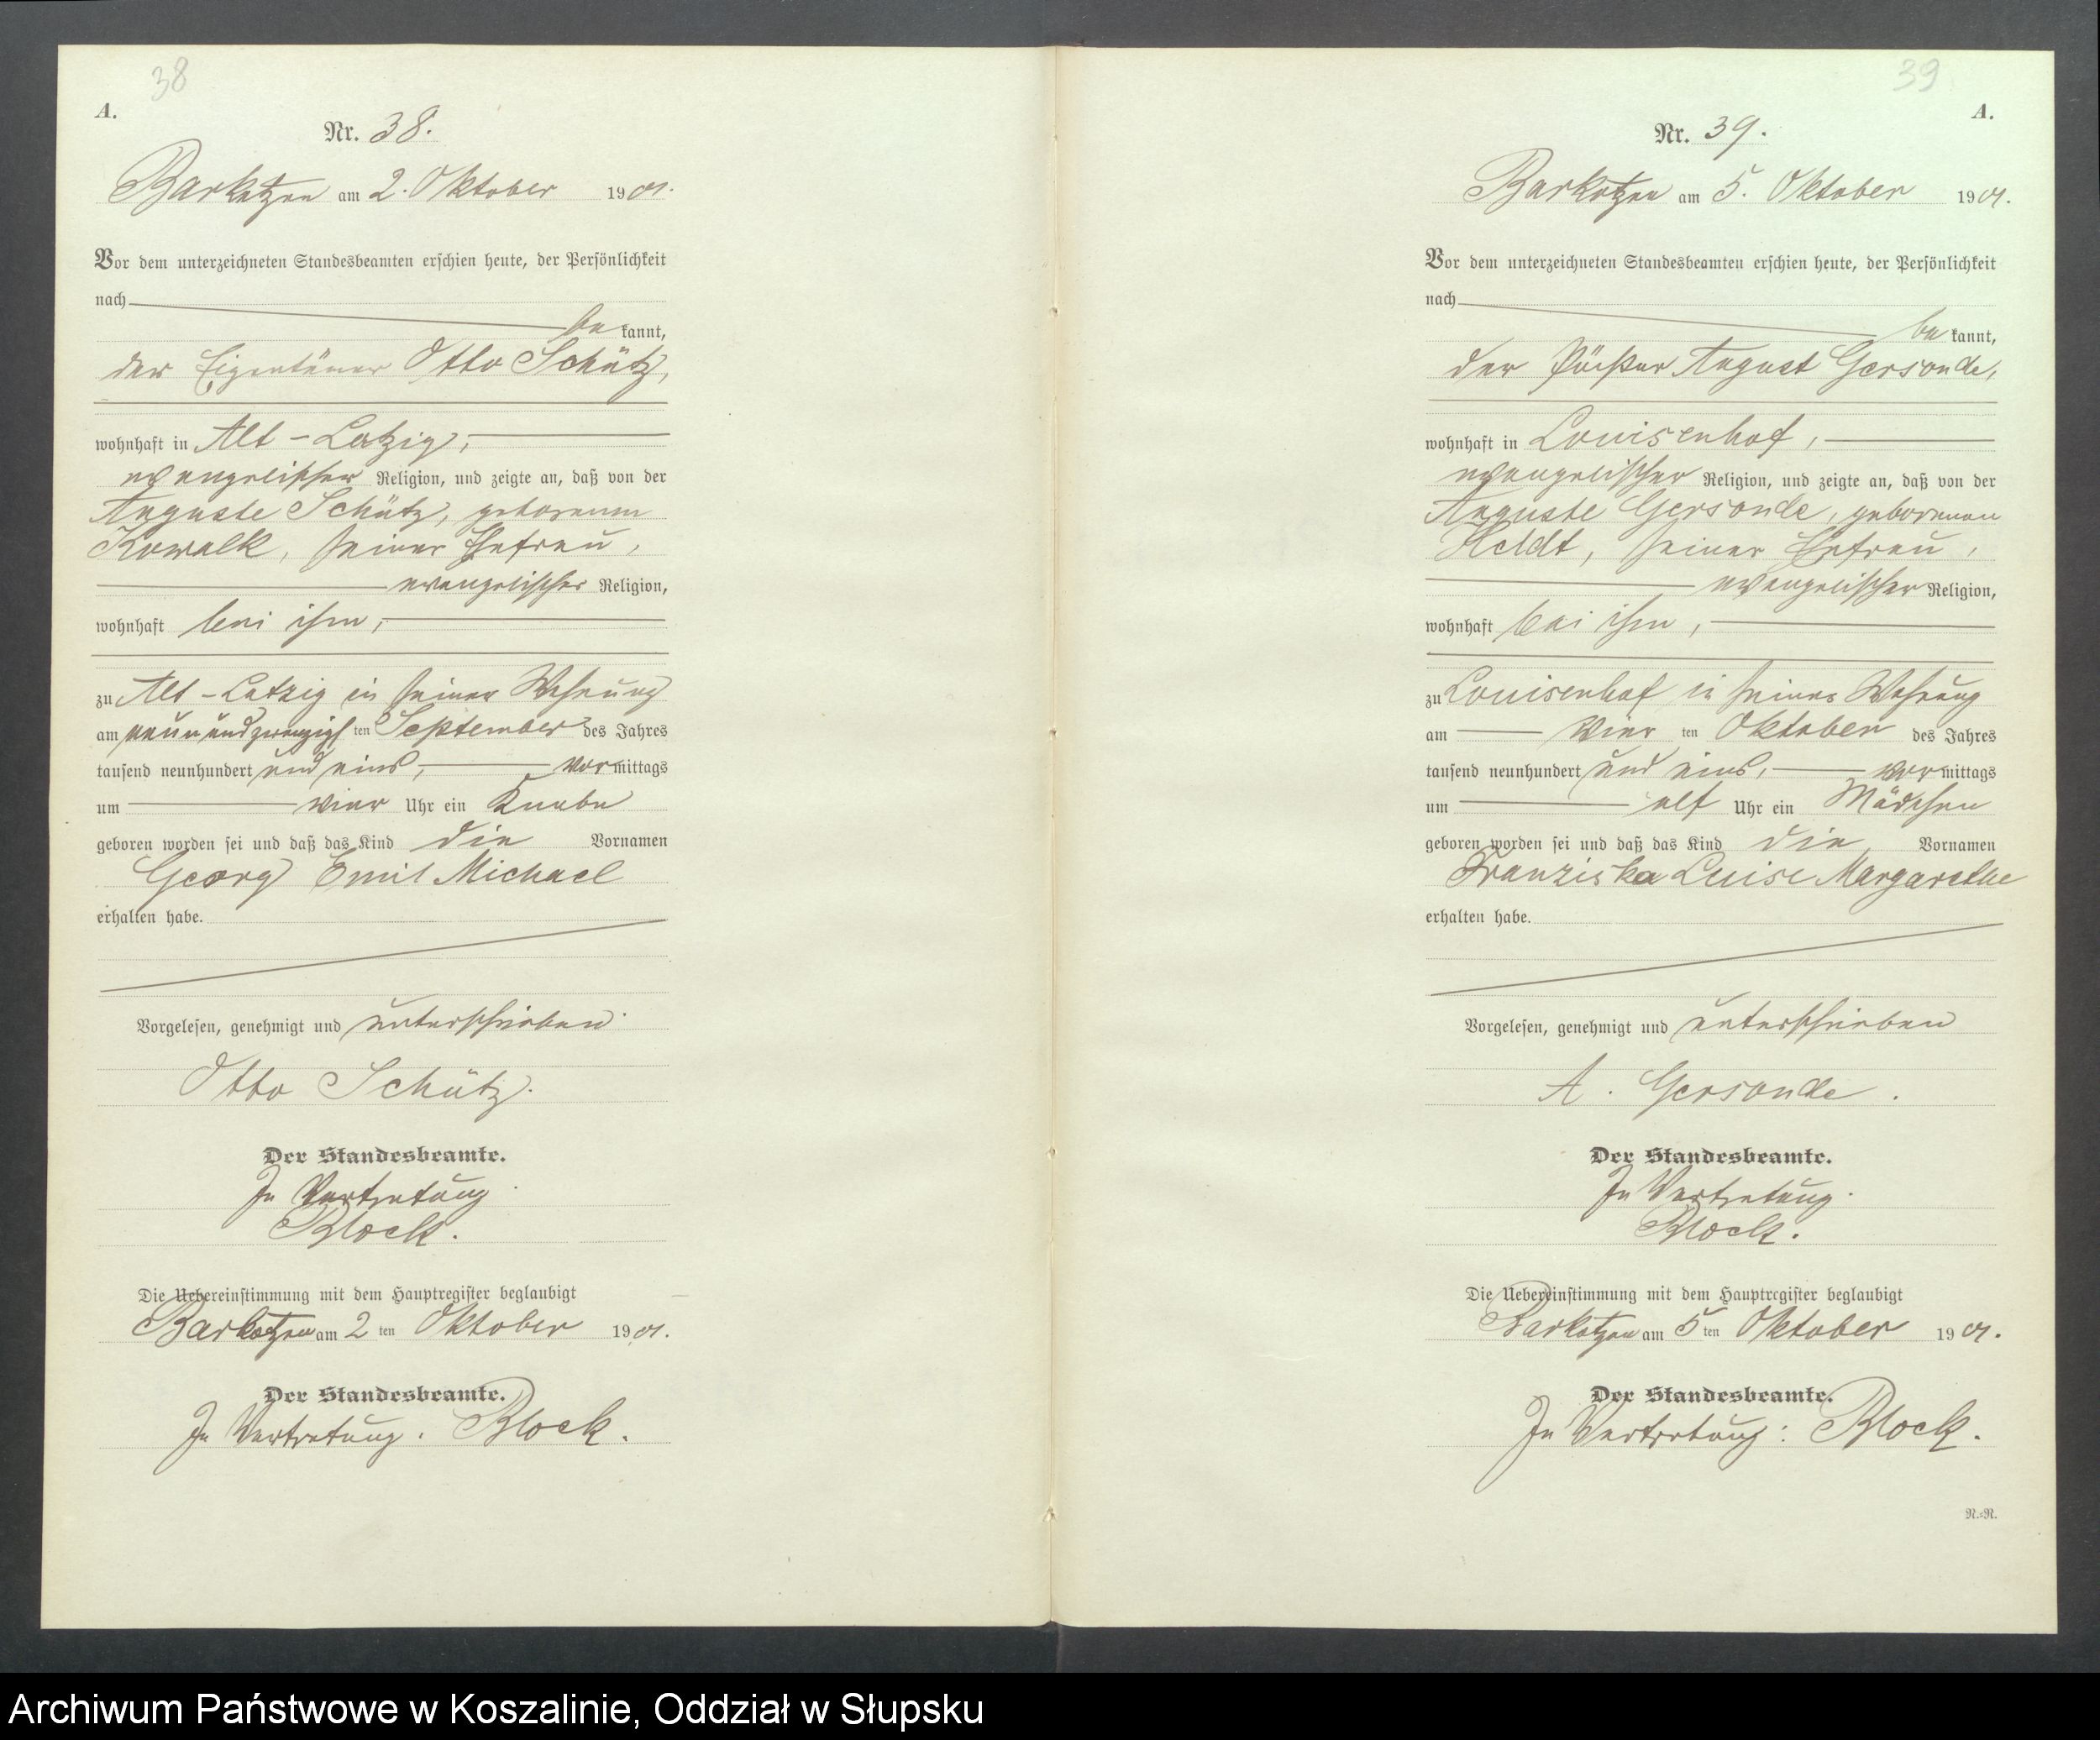 38
A.
Nr. 38.
Barkotzen am 2. Oktober 1901.
Vor dem unterzeichneten Standesbeamten erschien heute, der Persönlichkeit
nach
be kannt,
der Eigentümer Otto Schütz,
wohnhaft in Alt-Latzig,
evangelischer Religion, und zeigte an, daß von der
Auguste Schütz, geborenen
Kowalk, seiner Ehefrau,
evangelischer Religion,
wohnhaft bei ihm,
zu Alt-Latzig in seiner Wohnung
am neunundzwanzigsten September des Jahres
tausend neunhundert und eins, vormittags
um vier Uhr ein Knabe
geboren worden sei und daß das Kind die Vornamen
Georg Emil Michael
erhalten habe.
Vorgelesen, genehmigt und unterschrieben
Otto Schütz.
Der Standesbeamte.
In Vertretung
Block.
Die Uebereinstimmung mit dem Hauptregister beglaubigt
Barkotzen am 2 ten Oktober 1901.
Der Standesbeamte.
In Vertretung. Block.
39
A.
Nr. 39.
Barkotzen am 5. Oktober 1901.
Vor dem unterzeichneten Standesbeamten erschien heute, der Persönlichkeit
nach
be kannt,
der August Gersonde,
wohnhaft in Louisenhof,
evangelischer Religion, und zeigte an, daß von der
Auguste Gersonde, geborenen
Heldt, seiner Ehefrau,
evangelischer Religion,
wohnhaft bei ihm,
zu Louisenhof in seiner Wohnung
am vier ten Oktober des Jahres
tausend neunhundert und eins, vormittags
um elf Uhr ein Mädchen
geboren worden sei und daß das Kind die Vornamen
Franziska Luise Margarethe
erhalten habe.
Vorgelesen, genehmigt und unterschrieben
A. Gersonde.
Der Standesbeamte.
In Vertretung.
Block.
Die Uebereinstimmung mit dem Hauptregister beglaubigt
Barkotzen am 5 ten Oktober 1901.
Der Standesbeamte.
In Vertretung: Block.
N.=R.
Archiwum Państwowe w Koszalinie, Oddział w Słupsku